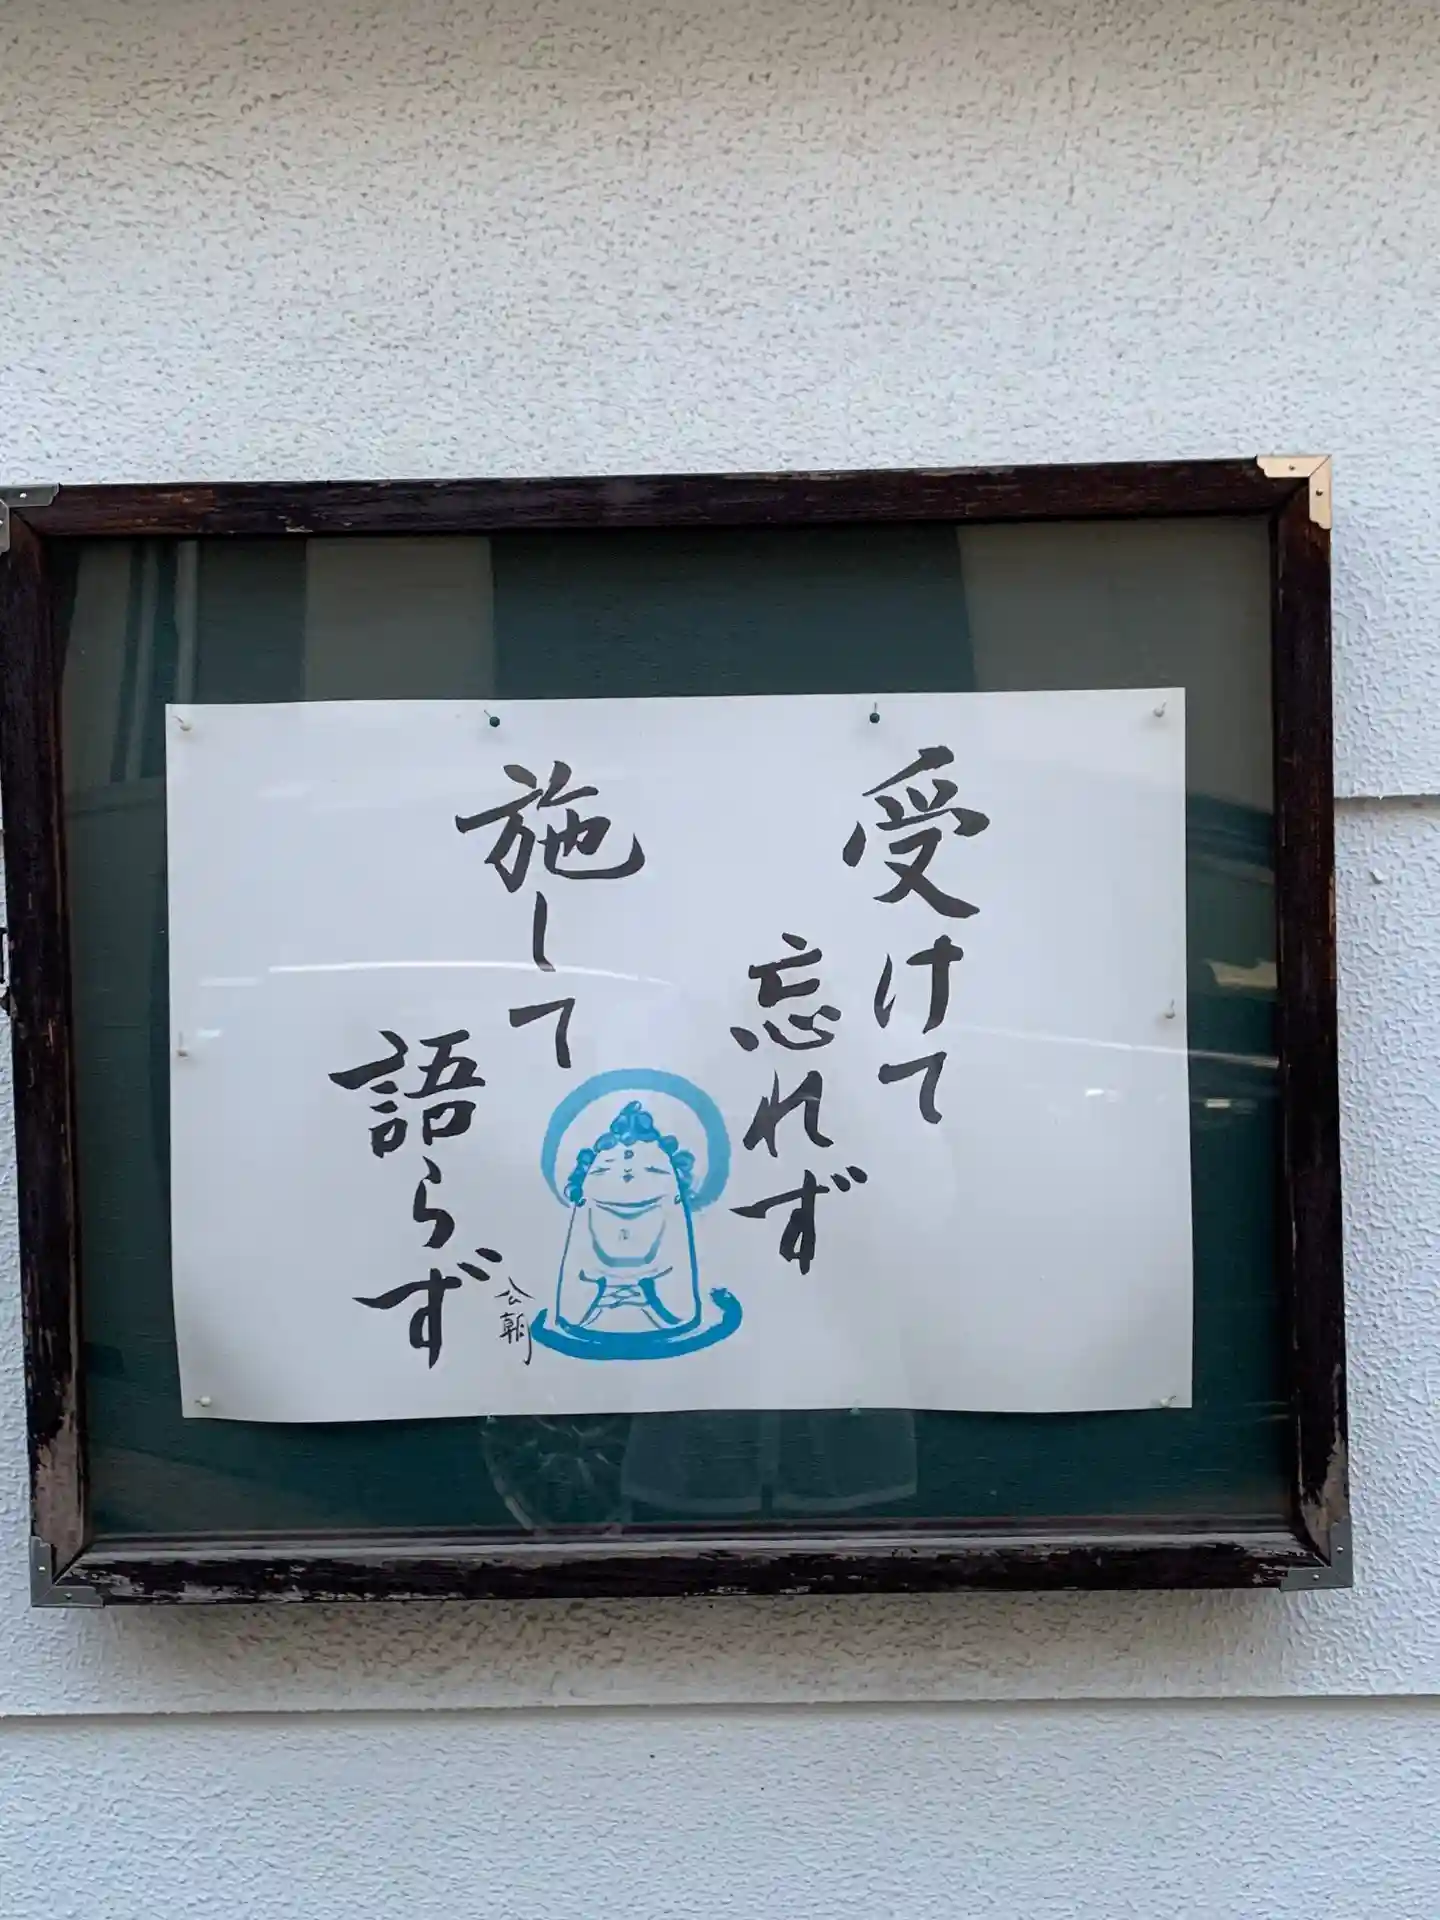 受けて
忘れず
施して
語らず
公朝